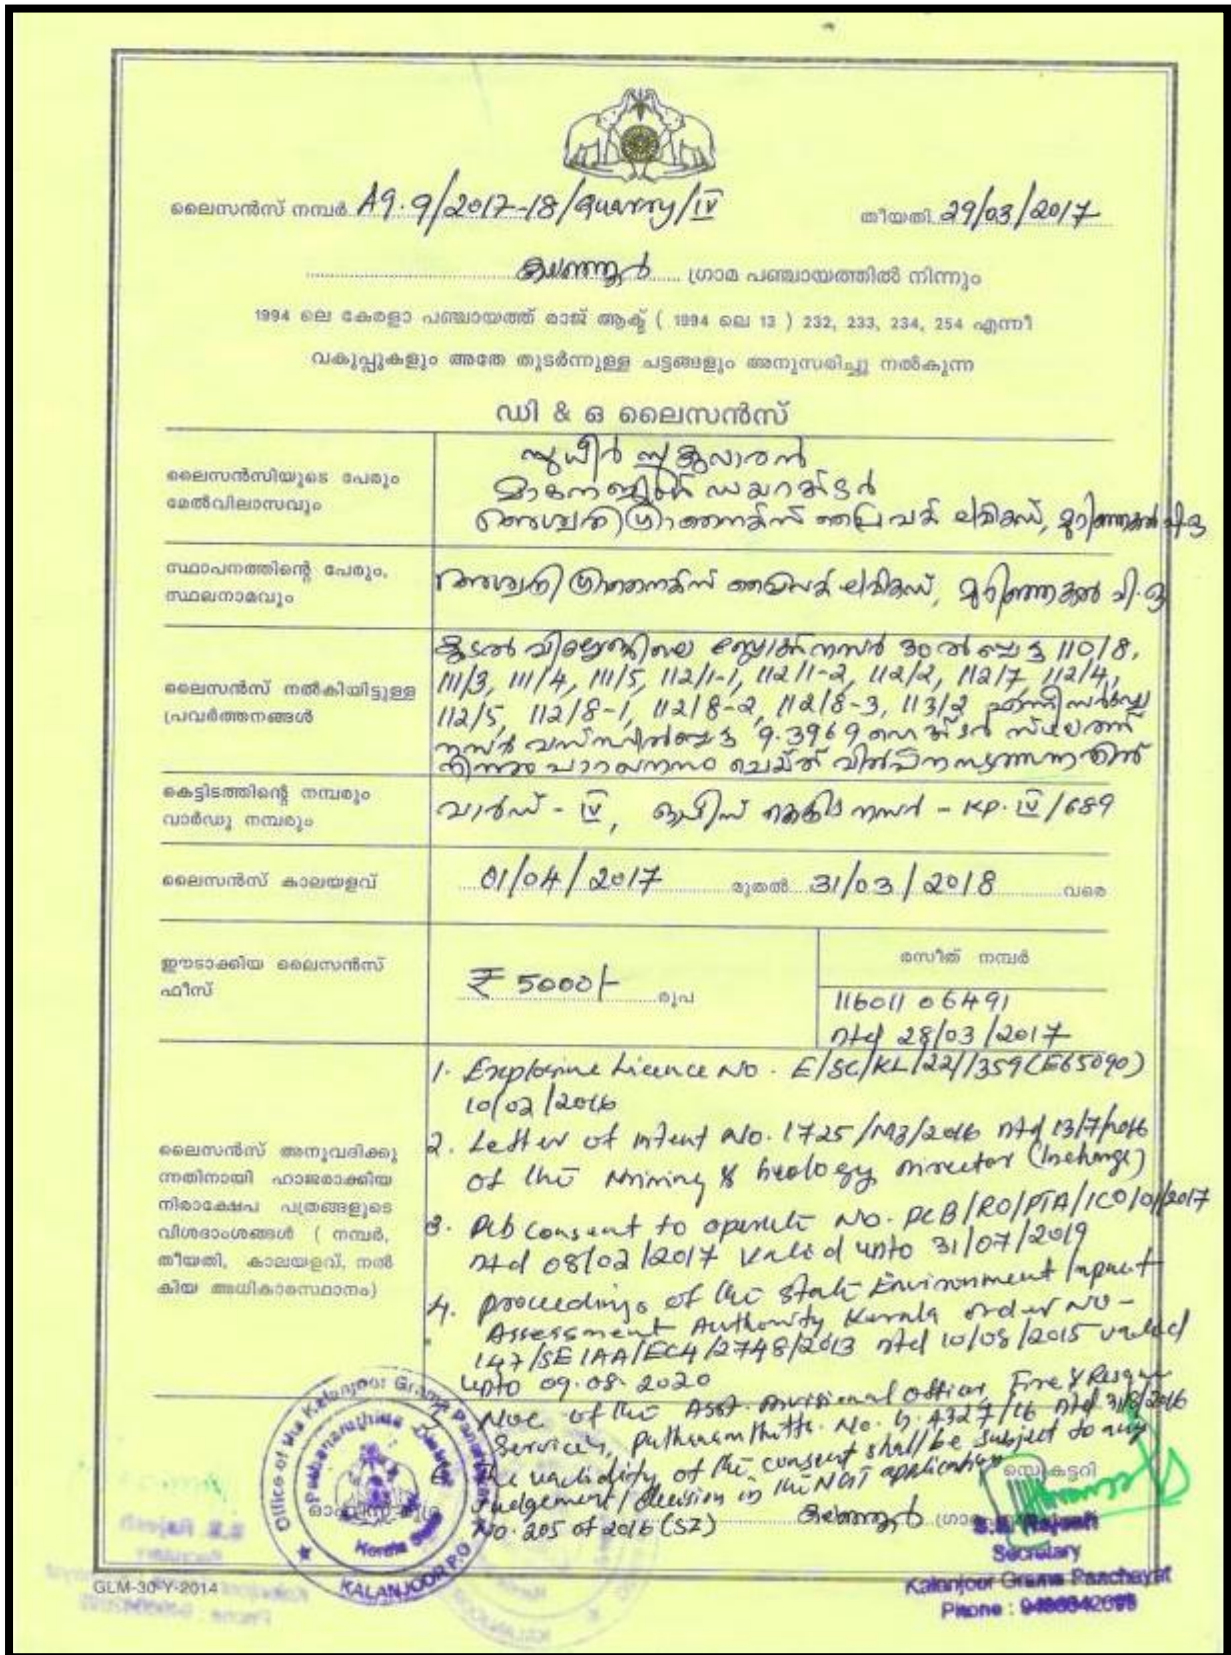 ലൈസൻസ് നമ്പർ A9-9/2017-18/Quarry/IV തീയതി 29/03/2017
കലഞ്ഞൂർ ഗ്രാമ പഞ്ചായത്തിൽ നിന്നും
1994 ലെ കേരളാ പഞ്ചായത്ത് രാജ് ആക്ട് ( 1994 ലെ 13 ) 232, 233, 234, 254 എന്നീ
വകുപ്പുകളും അതേ തുടർന്നുള്ള ചട്ടങ്ങളും അനുസരിച്ചു നൽകുന്ന
ഡി & ഒ ലൈസൻസ്
ലൈസൻസിയുടെ പേരും
മേൽവിലാസവും
സുധീർ സുകുമാരൻ
മാനേജിംഗ് ഡയറക്ടർ
പ്രൈവറ്റ് ലിമിറ്റഡ്, മുറിഞ്ഞകൽ പി.ഒ
സ്ഥാപനത്തിന്റെ പേരും,
സ്ഥലനാമവും
പ്രൈവറ്റ് ലിമിറ്റഡ്, മുറിഞ്ഞകൽ പി.ഒ
ലൈസൻസ് നൽകിയിട്ടുള്ള
പ്രവർത്തനങ്ങൾ
കൂടൽ വില്ലേജിലെ ബ്ലോക്ക് നമ്പർ 30 ൽ പ്പെട്ട 110/8,
111/3, 111/4, 111/5, 112/1-1, 112/1-2, 112/2, 112/7, 112/4,
112/5, 112/8-1, 112/8-2, 112/8-3, 113/2 എന്നീ സർവ്വെ
നമ്പർ 9.3969 ഹെക്ടർ സ്ഥലത്ത്
നിന്നും പാറഖനനം ചെയ്ത് വിൽപ്പന നടത്തുന്നതിന്
കെട്ടിടത്തിന്റെ നമ്പരും
വാർഡു നമ്പരും
വാർഡ് - IV, ഓഫീസ് കെട്ടിട നമ്പർ - KP. IV/689
ലൈസൻസ് കാലയളവ്
01/04/2017 മുതൽ 31/03/2018 വരെ
ഈടാക്കിയ ലൈസൻസ്
ഫീസ്
₹ 5000/- രൂപ
രസീത് നമ്പർ
116011 06491
dtd 28/03/2017
ലൈസൻസ് അനുവദിക്കു
ന്നതിനായി ഹാജരാക്കിയ
നിരാക്ഷേപ പത്രങ്ങളുടെ
വിശദാംശങ്ങൾ ( നമ്പർ,
തീയതി, കാലയളവ്, നൽ
കിയ അധികാരസ്ഥാനം)
1. Explosive Licence No. E/SC/KL/22/1359 (E65090)
10/02/2016
2. Letter of intent No. 1725/M3/2016 dtd 13/7/2016
of the Mining & Geology Director (Incharge)
3. Pcb consent to operate No. PCB/RO/PTA/ICO/01/2017
dtd 08/02/2017 valid upto 31/07/2019
4. Proceedings of the State Environment Impact
Assessment Authority Kerala order No -
147/SEIAA/EC4/2748/2013 dtd 10/08/2015 valid
upto 09.08.2020
NOC of the Asst. Divisional Officer, Fire & Rescue
Services, Pathanamthitta. No. G. 4327/16 dtd 31/8/2016
6. The validity of the consent shall be subject to any
Judgement/decision in the NGT application
No. 205 of 2016 (SZ)
Office of the Kalanjoor Grama Panchayat
Pathanamthitta District
Kerala State
KALANJOOR P.O
സെക്രട്ടറി
കലഞ്ഞൂർ
Secretary
Kalanjoor Grama Panchayat
GLM-30-Y-2014